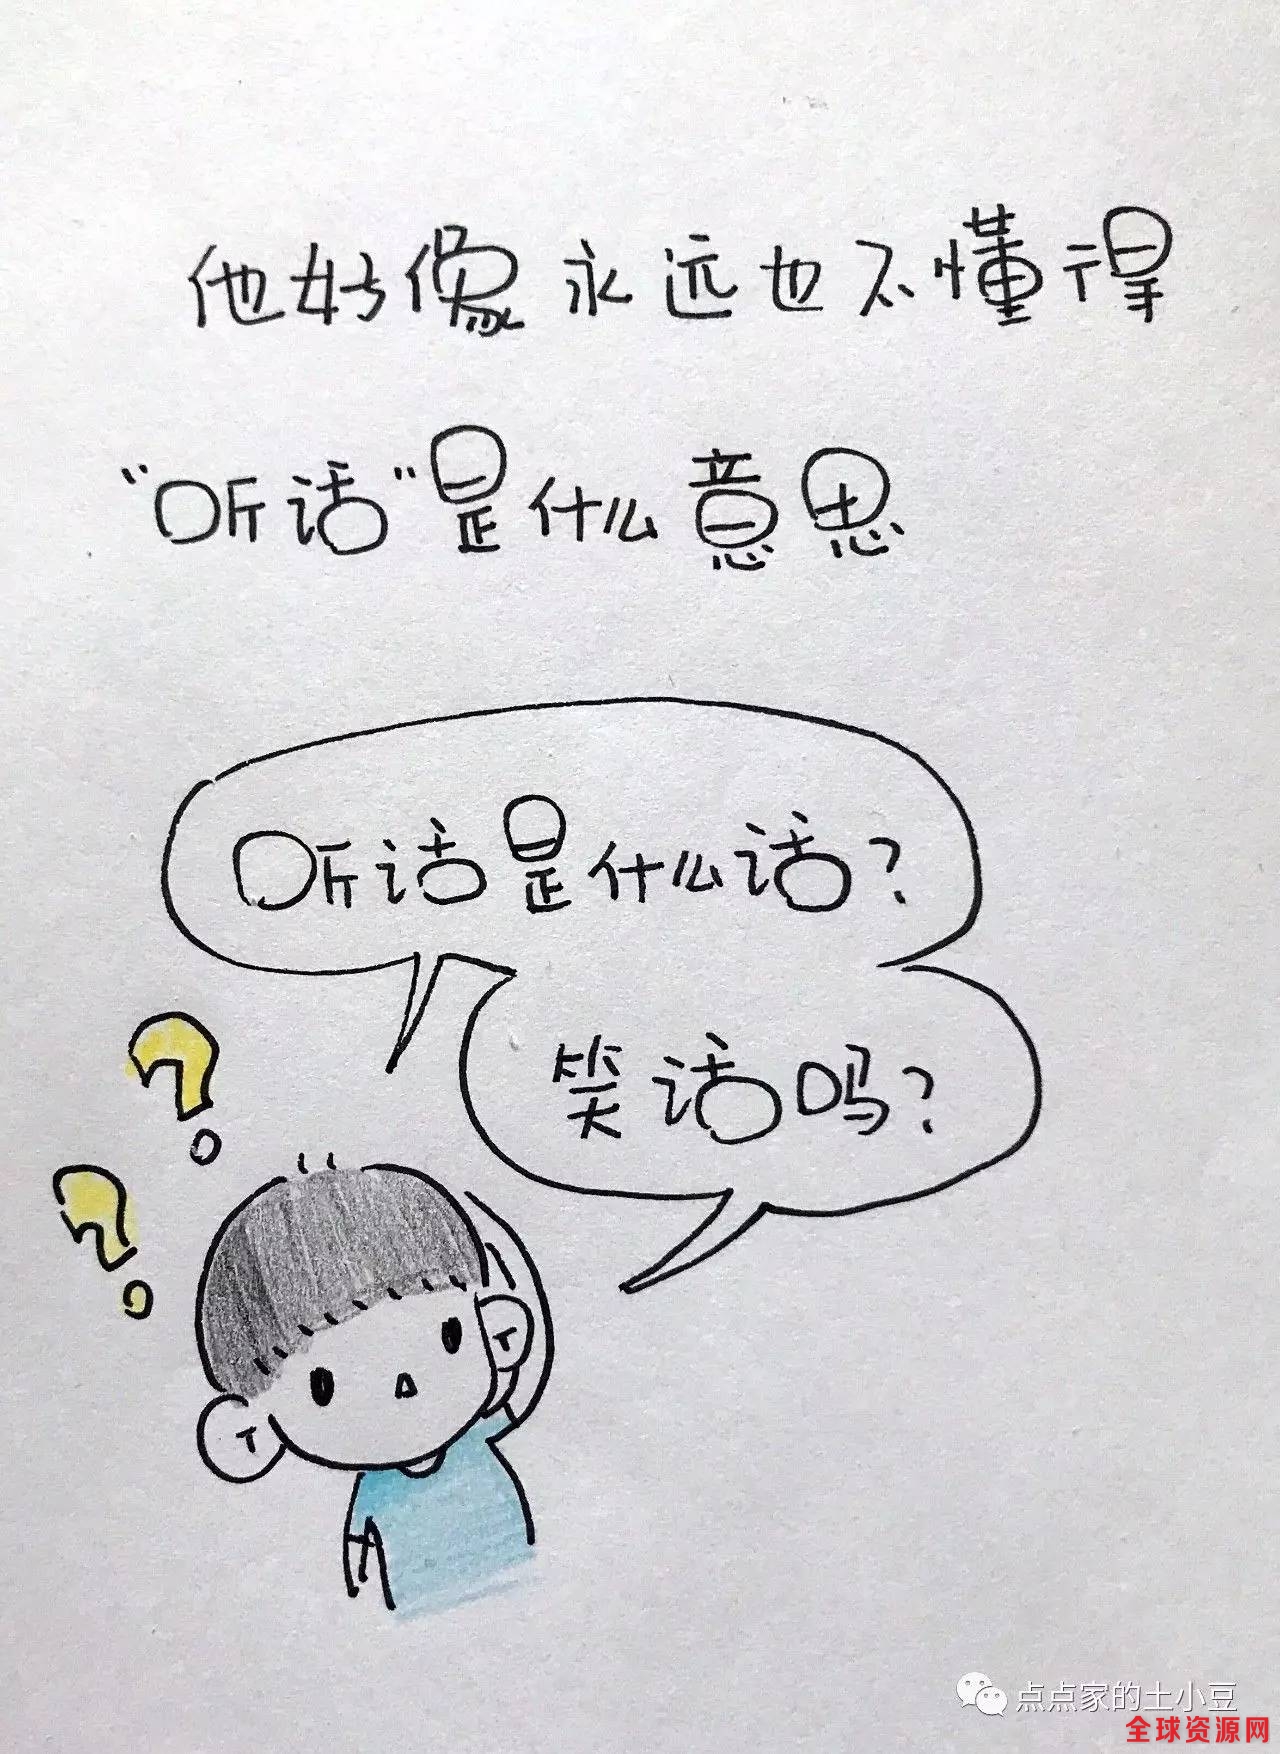 他好像永远也不懂得
“听话”是什么意思
听话是什么话?
笑话吗?
点点家的土小豆
全球资源网